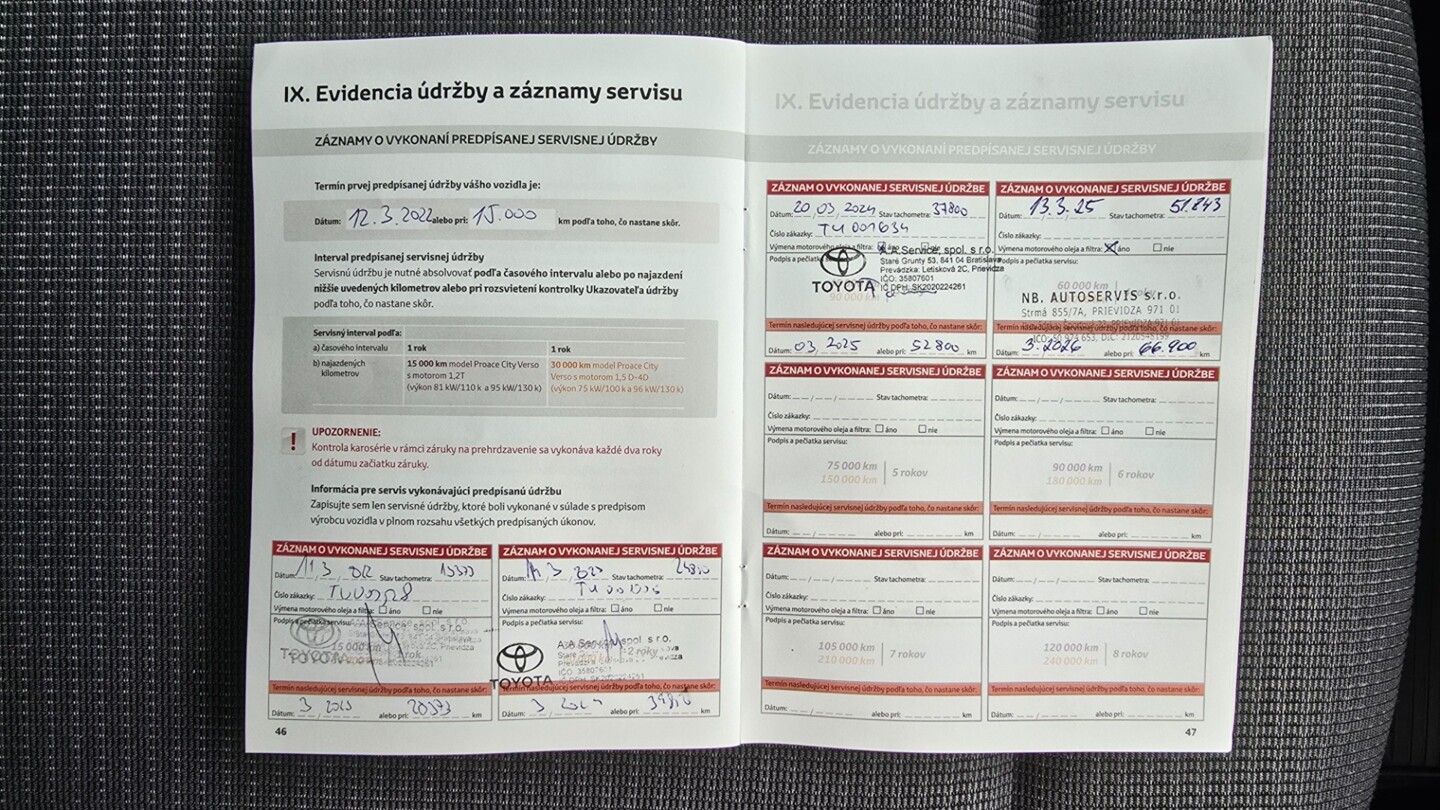 IX. Evidencia údržby a záznamy servisu
ZÁZNAMY O VYKONANÍ PREDPÍSANEJ SERVISNEJ ÚDRŽBY
Termín prvej predpísanej údržby vášho vozidla je:
Dátum: 12.3.2022 alebo pri: 15.000 km podľa toho, čo nastane skôr.
Interval predpísanej servisnej údržby
Servisnú údržbu je nutné absolvovať podľa časového intervalu alebo po najazdení
nižšie uvedených kilometrov alebo pri rozsvietení kontrolky Ukazovateľa údržby
podľa toho, čo nastane skôr.
Servisný interval podľa:
a) časového intervalu 1 rok 1 rok
b) najazdených kilometrov
15 000 km model Proace City Verso
s motorom 1,2T
(výkon 81 kW/110 k a 95 kW/130 k)
30 000 km model Proace City
Verso s motorom 1,5 D-4D
(výkon 75 kW/100 k a 96 kW/130 k)
! UPOZORNENIE:
Kontrola karosérie v rámci záruky na prehrdzavenie sa vykonáva každé dva roky
od dátumu začiatku záruky.
Informácia pre servis vykonávajúci predpísanú údržbu
Zapisujte sem len servisné údržby, ktoré boli vykonané v súlade s predpisom
výrobcu vozidla v plnom rozsahu všetkých predpísaných úkonov.
ZÁZNAM O VYKONANEJ SERVISNEJ ÚDRŽBE
Dátum: 11 3 Stav tachometra: 15373
Číslo zákazky:
Výmena motorového oleja a filtra: áno nie
Podpis a pečiatka servisu:
TOYOTA
15 000 km 1 rok
Termín nasledujúcej servisnej údržby podľa toho, čo nastane skôr:
Dátum: 3 2023 alebo pri: km
ZÁZNAM O VYKONANEJ SERVISNEJ ÚDRŽBE
Dátum: 3 Stav tachometra:
Číslo zákazky:
Výmena motorového oleja a filtra: áno nie
Podpis a pečiatka servisu:
TOYOTA
A.A.Service, spol. s r.o.
2 roky
IČO: 35807601
IČ DPH: SK2020224261
Termín nasledujúcej servisnej údržby podľa toho, čo nastane skôr:
Dátum: 3 2024 alebo pri: km
46
IX. Evidencia údržby a záznamy servisu
ZÁZNAMY O VYKONANÍ PREDPÍSANEJ SERVISNEJ ÚDRŽBY
ZÁZNAM O VYKONANEJ SERVISNEJ ÚDRŽBE
Dátum: 20 03 2024 Stav tachometra: 37800
Číslo zákazky: TU001634
Výmena motorového oleja a filtra: áno nie
Podpis a pečiatka servisu:
TOYOTA
A.A.Service, spol. s r.o.
Staré Grunty 53, 841 04 Bratislava
Prevádzka: Letisková 2C, Prievidza
IČO: 35807601
IČ DPH: SK2020224261
90 000 km
Termín nasledujúcej servisnej údržby podľa toho, čo nastane skôr:
Dátum: 03 2025 alebo pri: 52800 km
ZÁZNAM O VYKONANEJ SERVISNEJ ÚDRŽBE
Dátum: 13.3.25 Stav tachometra: 51.843
Číslo zákazky:
Výmena motorového oleja a filtra: áno nie
Podpis a pečiatka servisu:
60 000 km
NB. AUTOSERVIS s.r.o.
Strmá 855/7A, PRIEVIDZA 971 01
Termín nasledujúcej servisnej údržby podľa toho, čo nastane skôr:
Dátum: 3.2026 alebo pri: 66.900 km
ZÁZNAM O VYKONANEJ SERVISNEJ ÚDRŽBE
Dátum: Stav tachometra:
Číslo zákazky:
Výmena motorového oleja a filtra: áno nie
Podpis a pečiatka servisu:
75 000 km
150 000 km
5 rokov
Termín nasledujúcej servisnej údržby podľa toho, čo nastane skôr:
Dátum: alebo pri: km
ZÁZNAM O VYKONANEJ SERVISNEJ ÚDRŽBE
Dátum: Stav tachometra:
Číslo zákazky:
Výmena motorového oleja a filtra: áno nie
Podpis a pečiatka servisu:
90 000 km
180 000 km
6 rokov
Termín nasledujúcej servisnej údržby podľa toho, čo nastane skôr:
Dátum: alebo pri: km
ZÁZNAM O VYKONANEJ SERVISNEJ ÚDRŽBE
Dátum: Stav tachometra:
Číslo zákazky:
Výmena motorového oleja a filtra: áno nie
Podpis a pečiatka servisu:
105 000 km
210 000 km
7 rokov
Termín nasledujúcej servisnej údržby podľa toho, čo nastane skôr:
Dátum: alebo pri: km
ZÁZNAM O VYKONANEJ SERVISNEJ ÚDRŽBE
Dátum: Stav tachometra:
Číslo zákazky:
Výmena motorového oleja a filtra: áno nie
Podpis a pečiatka servisu:
120 000 km
240 000 km
8 rokov
Termín nasledujúcej servisnej údržby podľa toho, čo nastane skôr:
Dátum: alebo pri: km
47